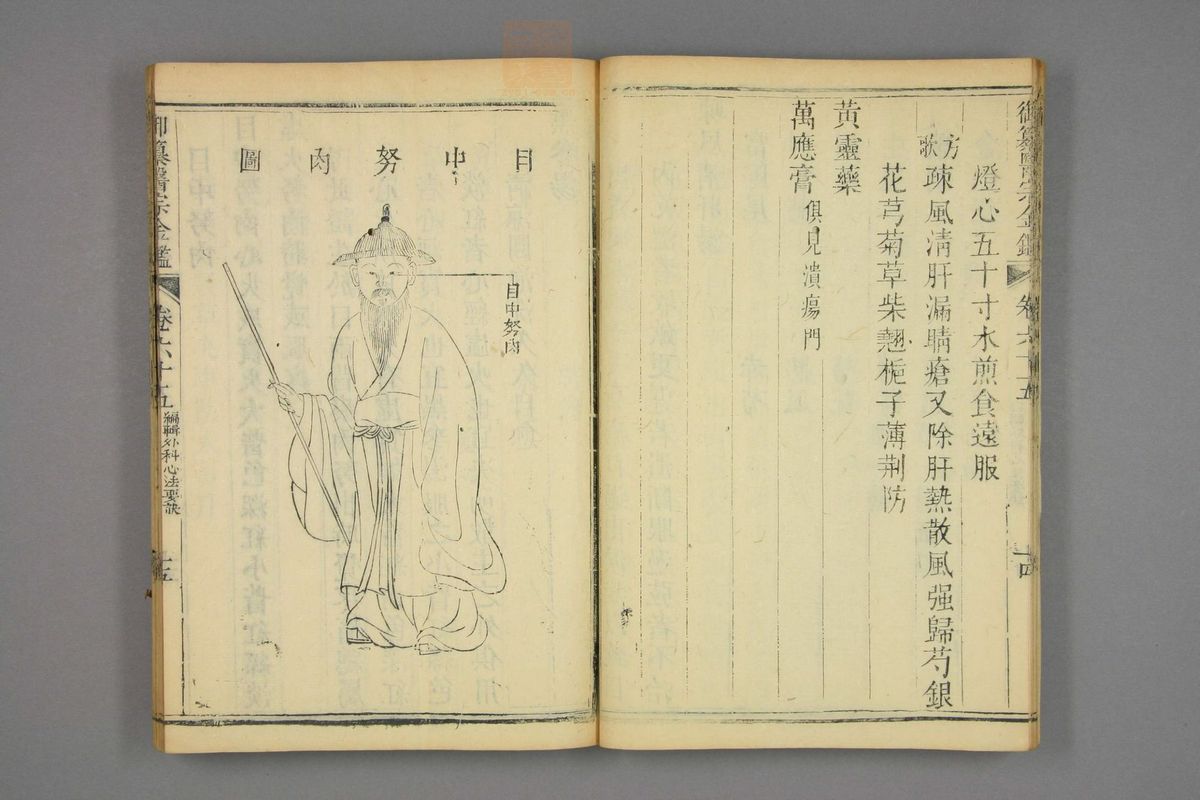 御纂醫宗金鑑 卷六十五 十四
燈心五十寸水煎食遠服
方歌
疎風清肝漏睛瘡又除肝熱散風強歸芍銀
花芎菊草柴翹梔子薄荆防
黃靈藥
萬應膏俱見潰瘍門
目中努肉圖
目中努肉
御纂醫宗金鑑 卷六十五 編輯外科心法要訣 十五